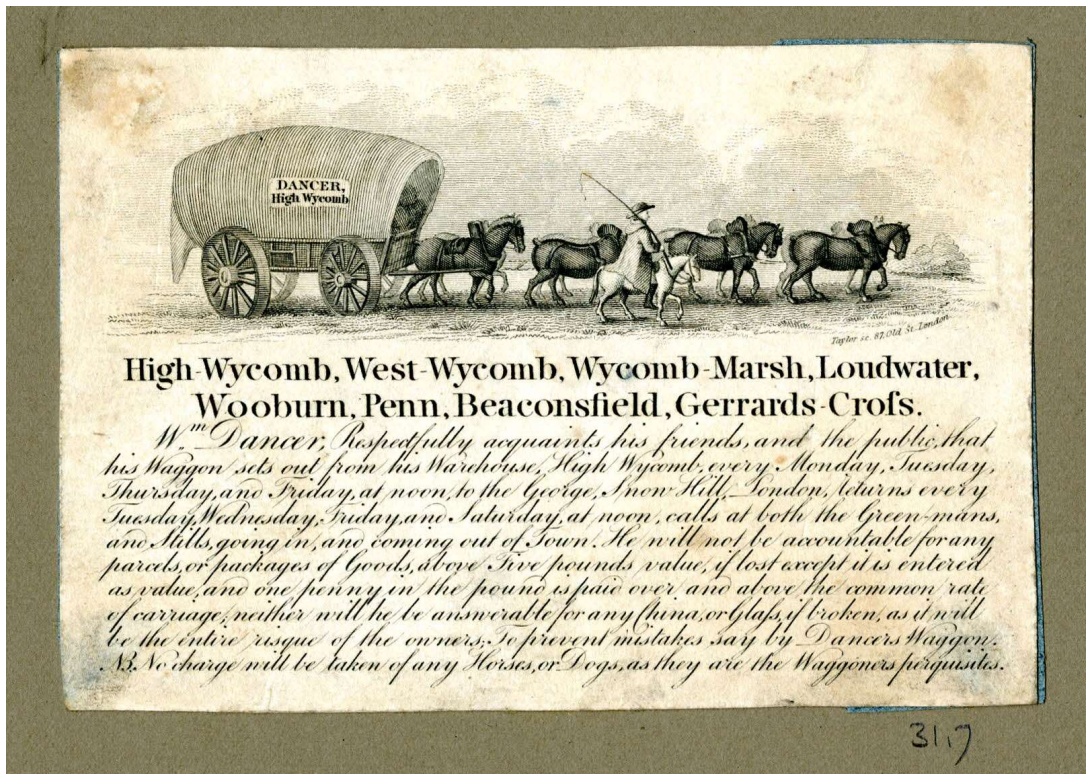 DANCER,
High Wycomb
Taylor sc. 87, Old St. London
High-Wycomb, West-Wycomb, Wycomb-Marsh, Loudwater,
Wooburn, Penn, Beaconsfield, Gerrards-Croſs.
Wm. Dancer, Respectfully acquaints his friends, and the public, that
his Waggon sets out from his Warehouse, High Wycomb, every Monday, Tuesday,
Thursday, and Friday, at noon, to the George, Snow Hill, London, returns every
Tuesday, Wednesday, Friday, and Saturday, at noon, calls at both the Green-mans,
and Mills, going in, and coming out of Town. He will not be accountable for any
parcels, or packages of Goods, above Five pounds value, if lost except it is entered
as value, and one penny in the pound is paid over and above the common rate
of carriage, neither will he be answerable for any China, or Glaſs, if broken, as it will
be the entire risque of the owners; To prevent mistakes say by Dancers Waggon.
NB. No charge will be taken of any Horses, or Dogs, as they are the Waggoners perquisites.
31,7